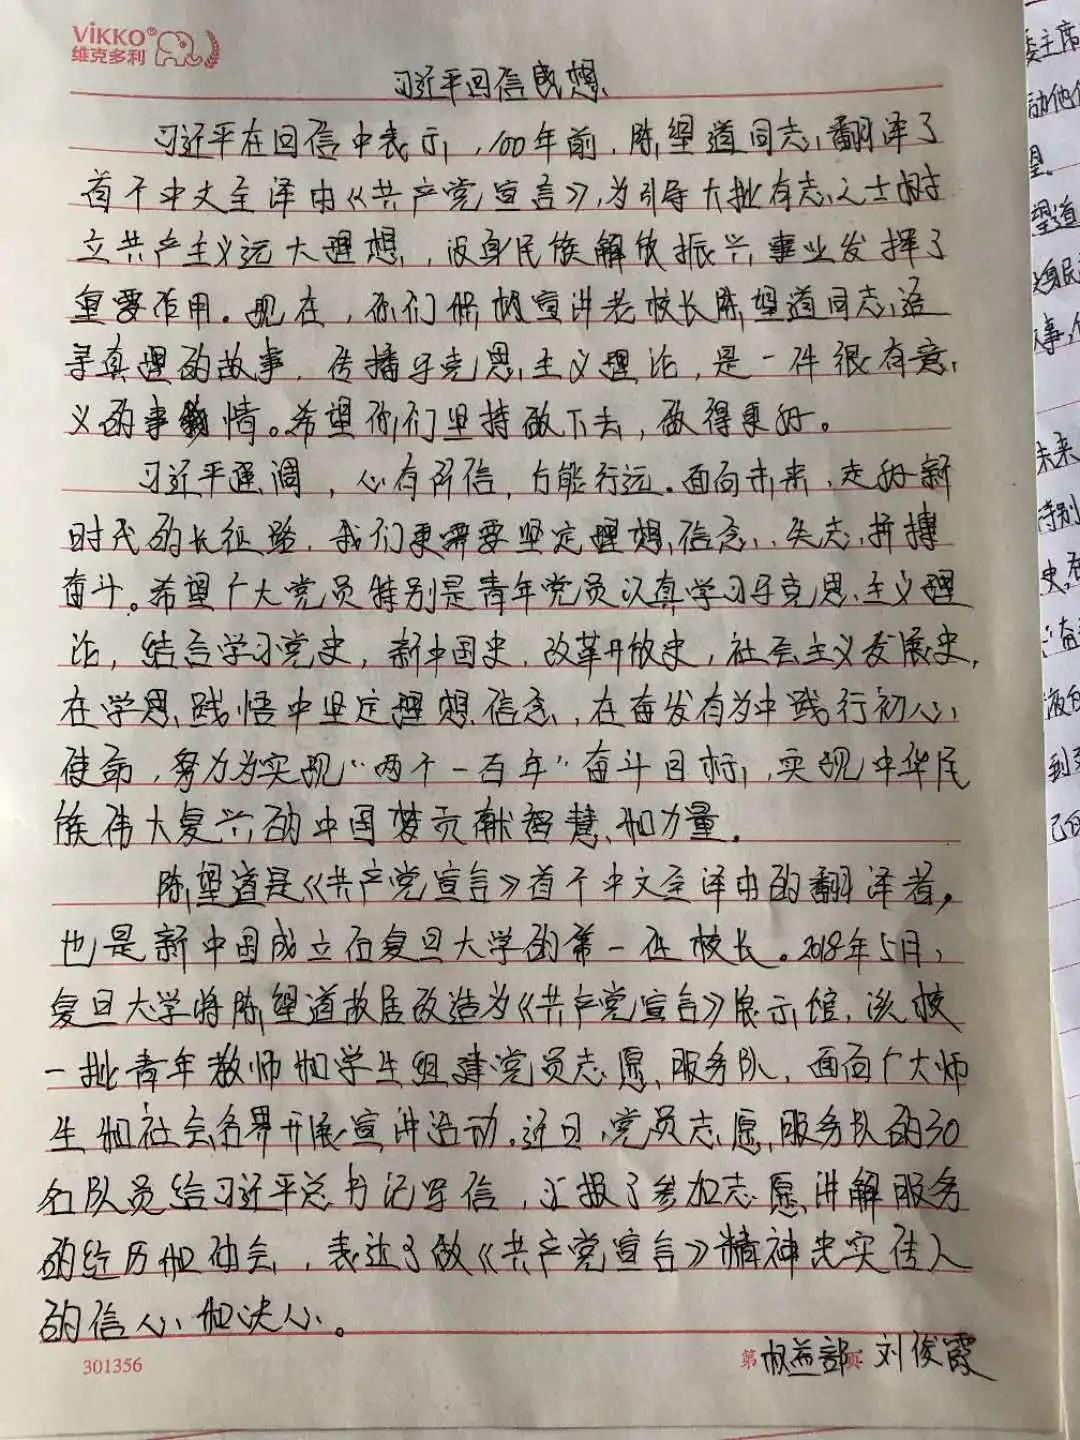 VIKKO®
维克多利
习近平回信感想
习近平在回信中表示，100年前，陈望道同志翻译了
首个中文全译本《共产党宣言》，为引导大批有志之士树
立共产主义远大理想，投身民族解放振兴事业发挥了
重要作用。现在，你们积极宣讲老校长陈望道同志追
寻真理的故事，传播马克思主义理论，是一件很有意
义的事情。希望你们坚持做下去，做得更好。
习近平强调，心有所信，方能行远。面向未来，走好新
时代的长征路，我们更需要坚定理想信念、矢志拼搏
奋斗。希望广大党员特别是青年党员认真学习马克思主义理
论，结合学习党史，新中国史，改革开放史，社会主义发展史，
在学思践悟中坚定理想信念，在奋发有为中践行初心
使命，努力为实现“两个一百年”奋斗目标，实现中华民
族伟大复兴的中国梦贡献智慧和力量。
陈望道是《共产党宣言》首个中文全译本的翻译者，
也是新中国成立后复旦大学的第一任校长。2018年5月，
复旦大学将陈望道故居改造为《共产党宣言》展示馆，该校
一批青年教师和学生组建党员志愿服务队，面向广大师
生和社会各界开展宣讲活动。近日，党员志愿服务队的30
名队员给习近平总书记写信，汇报了参加志愿讲解服务
的经历和体会，表达了做《共产党宣言》精神忠实传人
的信心和决心。
301356
第 页
权益部 刘俊霞
委主席
动他们
望。
望道
身民
事，
未来
特别
史，
液的
到
己的